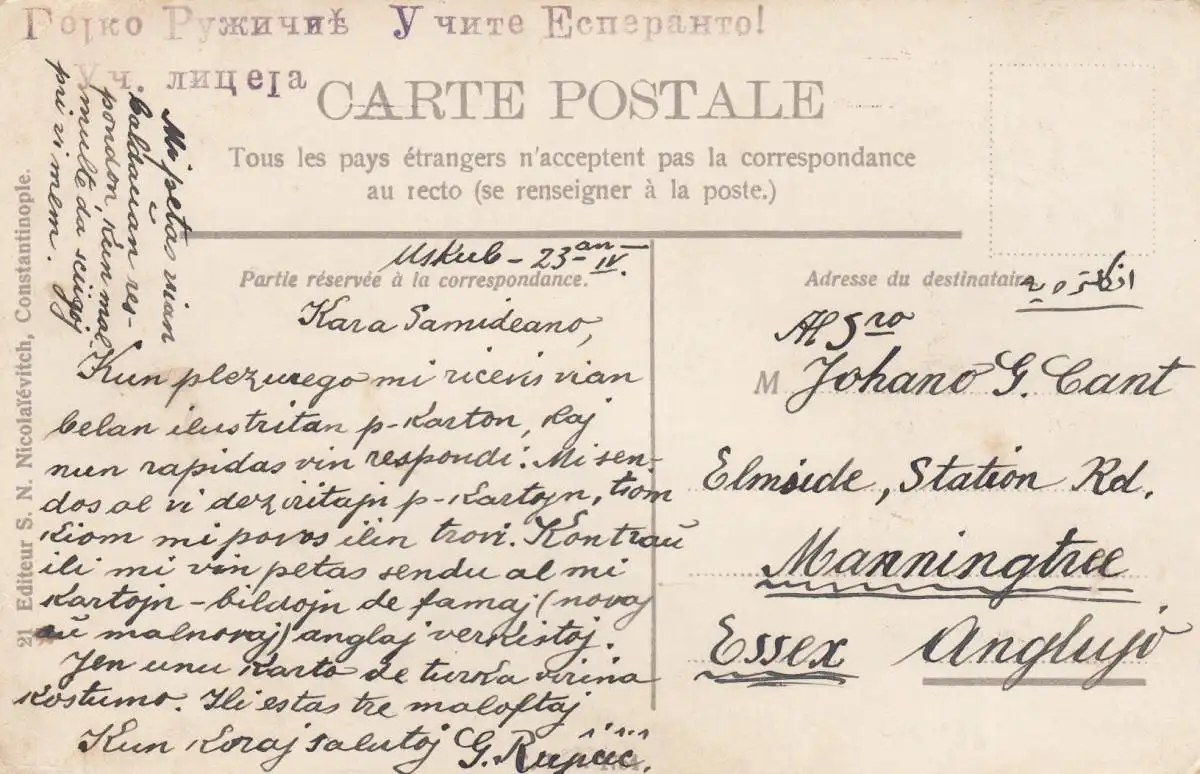 Гојко Ружичић Учите Есперанто!
Уч. лицеја
CARTE POSTALE
Tous les pays étrangers n'acceptent pas la correspondance
au recto (se renseigner à la poste.)
Mi petas vian
baldaŭan res-
pondon, kun mal
multe da sciigoj
pri vi mem.
21 Editeur S. N. Nicolaïévitch, Constantinople.
Uskub - 23an IV.
Partie réservée à la correspondance.
Kara Samideano,
Kun plezurego mi ricevis vian
belan ilustritan p-karton, kaj
nun rapidas vin respondi. Mi sen-
dos al vi deziritajn p-kartojn, tiom
kiom mi povos ilin trovi. Kontraŭ
ili mi vin petas sendu al mi
kartojn-bildojn de famaj (novaj
aŭ malnovaj) anglaj verkistoj.
Jen unu karto de turka virina
kostumo. Ili estas tre maloftaj
Kun koraj salutoj G.
Adresse du destinataire
انكلتره يه
Al Sro
M Johano G. Cant
Elmside, Station Rd.
Manningtree
Essex Anglujo